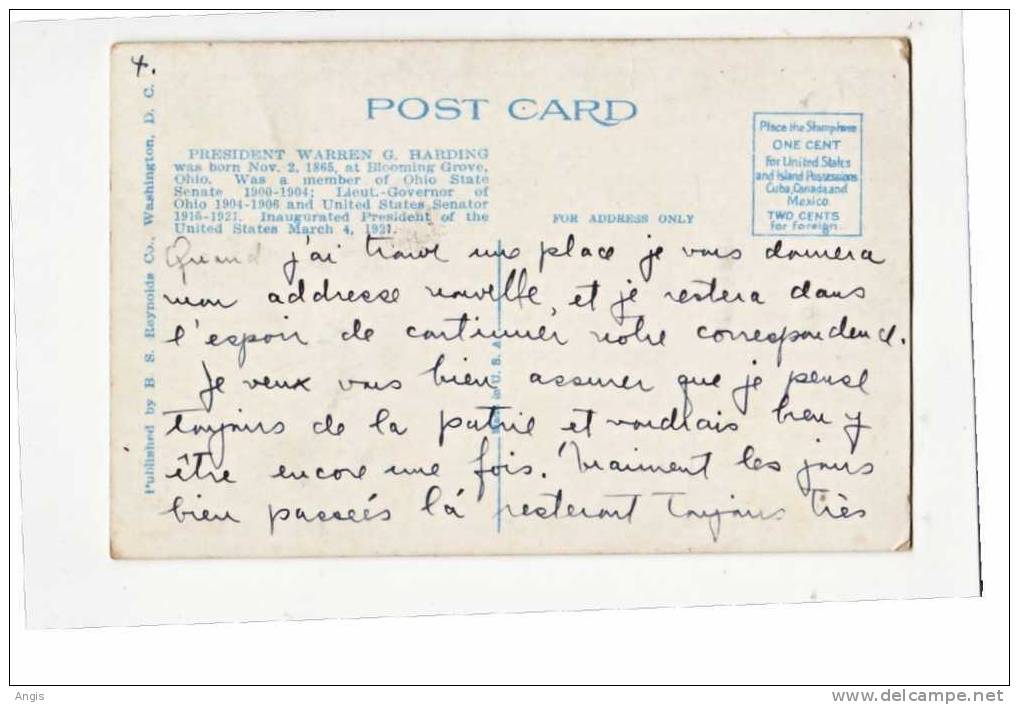 4.
POST CARD
Place the Stamp here
ONE CENT
For United States
and Island Possessions
Cuba, Canada and
Mexico
TWO CENTS
for Foreign.
PRESIDENT WARREN G. HARDING
was born Nov. 2, 1865, at Blooming Grove,
Ohio. Was a member of Ohio State
Senate 1900-1904; Lieut.-Governor of
Ohio 1904-1906 and United States Senator
1915-1921. Inaugurated President of the
United States March 4, 1921.
FOR ADDRESS ONLY
Published by B. S. Reynolds Co., Washington, D. C.
Made in U. S. A.
Quand j'ai trouvé une place je vous donnera
mon addresse nouvelle, et je restera dans
l'espoir de continuer notre correspondence.
Je veux vous bien assurer que je pense
toujours de la patrie et voudrais bien y
être encore une fois. Vraiment les jours
bien passées là resteront toujours très
Angis
delcampe.net